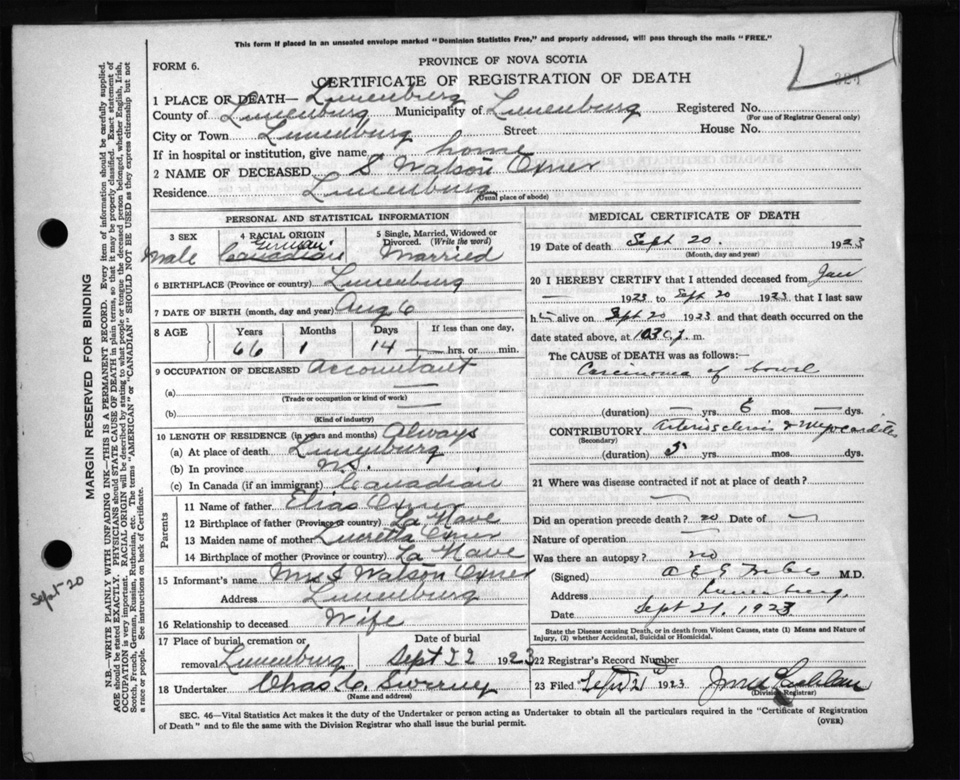 This form if placed in an unsealed envelope marked "Dominion Statistics Free," and properly addressed, will pass through the mails "FREE."
FORM 6.
PROVINCE OF NOVA SCOTIA
CERTIFICATE OF REGISTRATION OF DEATH
1 PLACE OF DEATH— Lunenburg
County of Lunenburg Municipality of Lunenburg Registered No.
(For use of Registrar General only)
City or Town Lunenburg Street House No.
If in hospital or institution, give name home
2 NAME OF DECEASED S Watson Oxner
Residence Lunenburg
(Usual place of abode)
PERSONAL AND STATISTICAL INFORMATION
3 SEX
Male
4 RACIAL ORIGIN
German
Canadian
5 Single, Married, Widowed or Divorced. (Write the word)
Married
6 BIRTHPLACE (Province or country) Lunenburg
7 DATE OF BIRTH (month, day and year) Aug 6
8 AGE
Years Months Days If less than one day,
66 1 14 — hrs. or min.
9 OCCUPATION OF DECEASED Accountant
(a) —
(Trade or occupation or kind of work)
(b) —
(Kind of industry)
10 LENGTH OF RESIDENCE (in years and months) Always
(a) At place of death Lunenburg
(b) In province N.S.
(c) In Canada (if an immigrant) Canadian
Parents
11 Name of father Elias Oxner
12 Birthplace of father (Province or country) La Have
13 Maiden name of mother Lucretta Oxner
14 Birthplace of mother (Province or country) La Have
15 Informant's name Mrs S Watson Oxner
Address Lunenburg
16 Relationship to deceased Wife
17 Place of burial, cremation or Date of burial
removal Lunenburg Sept 22 1923
18 Undertaker Chas C. Sweeney
(Name and address)
MEDICAL CERTIFICATE OF DEATH
19 Date of death Sept 20. 1923
(Month, day and year)
20 I HEREBY CERTIFY that I attended deceased from Jan
— 1923 to Sept 20 1923 that I last saw
h alive on Sept 20 1923 and that death occurred on
date stated above, at 1030 p. m.
The CAUSE of DEATH was as follows:—
Carcinoma of bowel
(duration) — yrs. 6 mos. — dys.
CONTRIBUTORY Arteriosclerosis & Myocarditis
(Secondary)
(duration) 5 yrs. mos. dys.
21 Where was disease contracted if not at place of death?
—
Did an operation precede death? no Date of —
Nature of operation —
Was there an autopsy? no
(Signed) M.D.
Address Lunenburg,
Date Sept 21. 1923
State the Disease causing Death, or in death from Violent Causes, state (1) Means and Nature of Injury, (2) whether Accidental, Suicidal or Homicidal.
22 Registrar's Record Number
23 Filed Sept 21 1923
(Division Registrar)
SEC. 46—Vital Statistics Act makes it the duty of the Undertaker or person acting as Undertaker to obtain all the particulars required in the "Certificate of Registration
of Death" and to file the same with the Division Registrar who shall issue the burial permit.
(OVER)
MARGIN RESERVED FOR BINDING
N.B.—WRITE PLAINLY WITH UNFADING INK—THIS IS A PERMANENT RECORD. Every item of information should be carefully supplied.
AGE should be stated EXACTLY. PHYSICIANS should STATE CAUSE OF DEATH in plain terms, so that it may be properly classified. Exact statement of
OCCUPATION is very important. RACIAL ORIGIN will be described by stating to what people or tongue the deceased person belonged, whether English, Irish,
Scotch, French, German, Russian, Ruthenian, etc. The terms "AMERICAN" or "CANADIAN" SHOULD NOT BE USED as they express citizenship but not
a race or people. See instructions on back of Certificate.
Sept 20